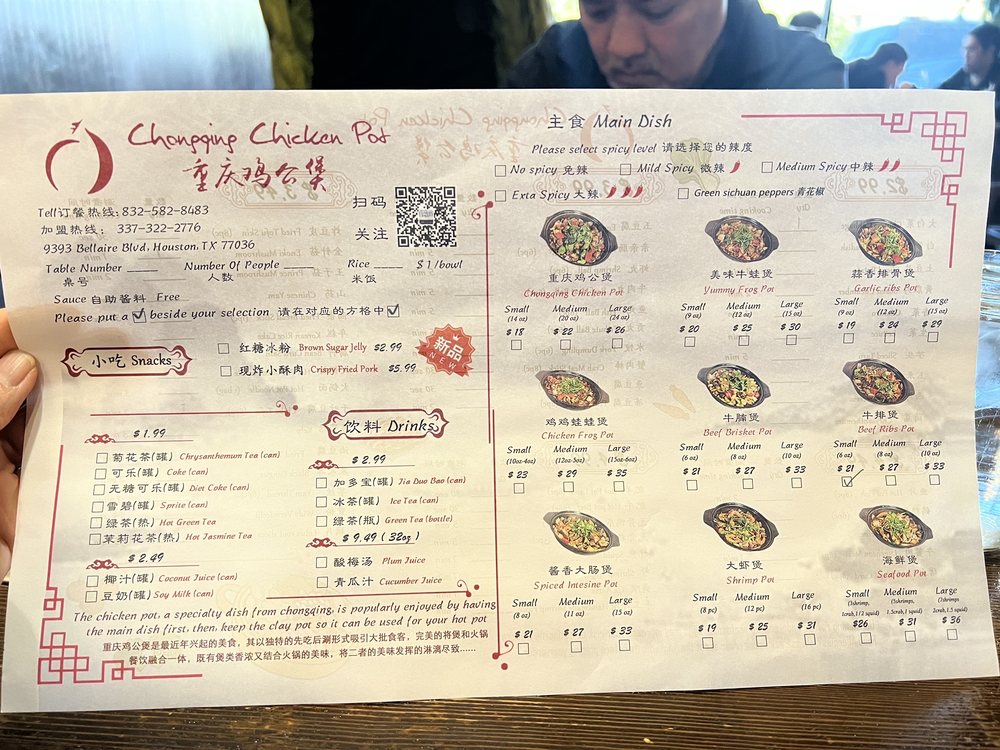 Chongqing Chicken Pot
重庆鸡公煲
扫码
关注
Tell订餐热线:832-582-8483
加盟热线: 337-322-2776
9393 Bellaire Blvd, Houston, TX 77036
Table Number ____ Number Of People ____ Rice ____ $1/bowl
桌号 人数 米饭
Sauce 自助酱料 Free
Please put a ☑ beside your selection 请在对应的方格中 ☑
小吃 Snacks
红糖冰粉 Brown Sugar Jelly $2.99
现炸小酥肉 Crispy Fried Pork $5.99
新品
NEW
$1.99
菊花茶(罐) Chrysanthemum Tea (can)
可乐(罐) Coke (can)
无糖可乐(罐) Diet Coke (can)
雪碧(罐) Sprite (can)
绿茶(热) Hot Green Tea
茉莉花茶(热) Hot Jasmine Tea
$2.49
椰汁(罐) Coconut Juice (can)
豆奶(罐) Soy Milk (can)
饮料 Drinks
$2.99
加多宝(罐) Jia Duo Bao (can)
冰茶(罐) Ice Tea (can)
绿茶(瓶) Green Tea (bottle)
$9.49 (32oz)
酸梅汤 Plum Juice
青瓜汁 Cucumber Juice
The chicken pot, a specialty dish from chongqing, is popularly enjoyed by having
the main dish first, then, keep the clay pot so it can be used for your hot pot
重庆鸡公煲是最近年兴起的美食，其以独特的先吃后涮形式吸引大批食客，完美的将煲和火锅
餐饮融合一体，既有煲类香浓又结合火锅的美味，将二者的美味发挥的淋漓尽致……
主食 Main Dish
Please select spicy level 请选择您的辣度
No spicy 免辣 Mild Spicy 微辣 Medium Spicy 中辣
Exta Spicy 大辣 Green sichuan peppers 青花椒
重庆鸡公煲 美味牛蛙煲 蒜香排骨煲
Chongqing Chicken Pot Yummy Frog Pot Garlic ribs Pot
Small Medium Large Small Medium Large Small Medium Large
(14 oz) (20 oz) (24 oz) (9 oz) (12 oz) (15 oz) (9 oz) (12 oz) (15 oz)
$18 $22 $26 $20 $25 $30 $19 $24 $29
鸡鸡蛙蛙煲 牛腩煲 牛排煲
Chicken Frog Pot Beef Brisket Pot Beef Ribs Pot
Small Medium Large Small Medium Large Small Medium Large
(10oz-4oz) (12oz-5oz) (15oz-6oz) (6 oz) (8 oz) (10 oz) (6 oz) (8 oz) (10 oz)
$23 $29 $35 $21 $27 $33 $21 $27 $33
酱香大肠煲 大虾煲 海鲜煲
Spiced Intesine Pot Shrimp Pot Seafood Pot
Small Medium Large Small Medium Large Small Medium Large
(8 oz) (11 oz) (15 oz) (8 pc) (12 pc) (16 pc)
$21 $27 $33 $19 $25 $31 $26 $31 $36